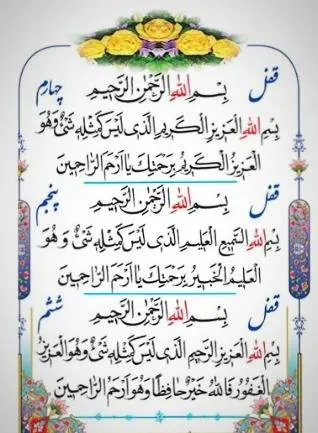 قفل چهارم
بِسْمِ اللهِ الرَّحْمٰنِ الرَّحِيمِ
بِسْمِ اللهِ الْعَزِيزِ الْكَرِيمِ الَّذِى لَيْسَ كَمِثْلِهِ شَىْءٌ وَهُوَ
الْعَزِيزُ الْكَرِيمُ بِرَحْمَتِكَ يَا أَرْحَمَ الرَّاحِمِينَ
قفل پنجم
بِسْمِ اللهِ الرَّحْمٰنِ الرَّحِيمِ
بِسْمِ اللهِ السَّمِيعِ الْعَلِيمِ الَّذِى لَيْسَ كَمِثْلِهِ شَىْءٌ وَهُوَ
الْعَلِيمُ الْخَبِيرُ بِرَحْمَتِكَ يَا أَرْحَمَ الرَّاحِمِينَ
قفل ششم
بِسْمِ اللهِ الرَّحْمٰنِ الرَّحِيمِ
بِسْمِ اللهِ الْعَزِيزِ الرَّحِيمِ الَّذِى لَيْسَ كَمِثْلِهِ شَىْءٌ وَهُوَ الْعَزِيزُ
الْغَفُورُ فَاللهُ خَيْرٌ حَافِظًا وَهُوَ أَرْحَمُ الرَّاحِمِينَ